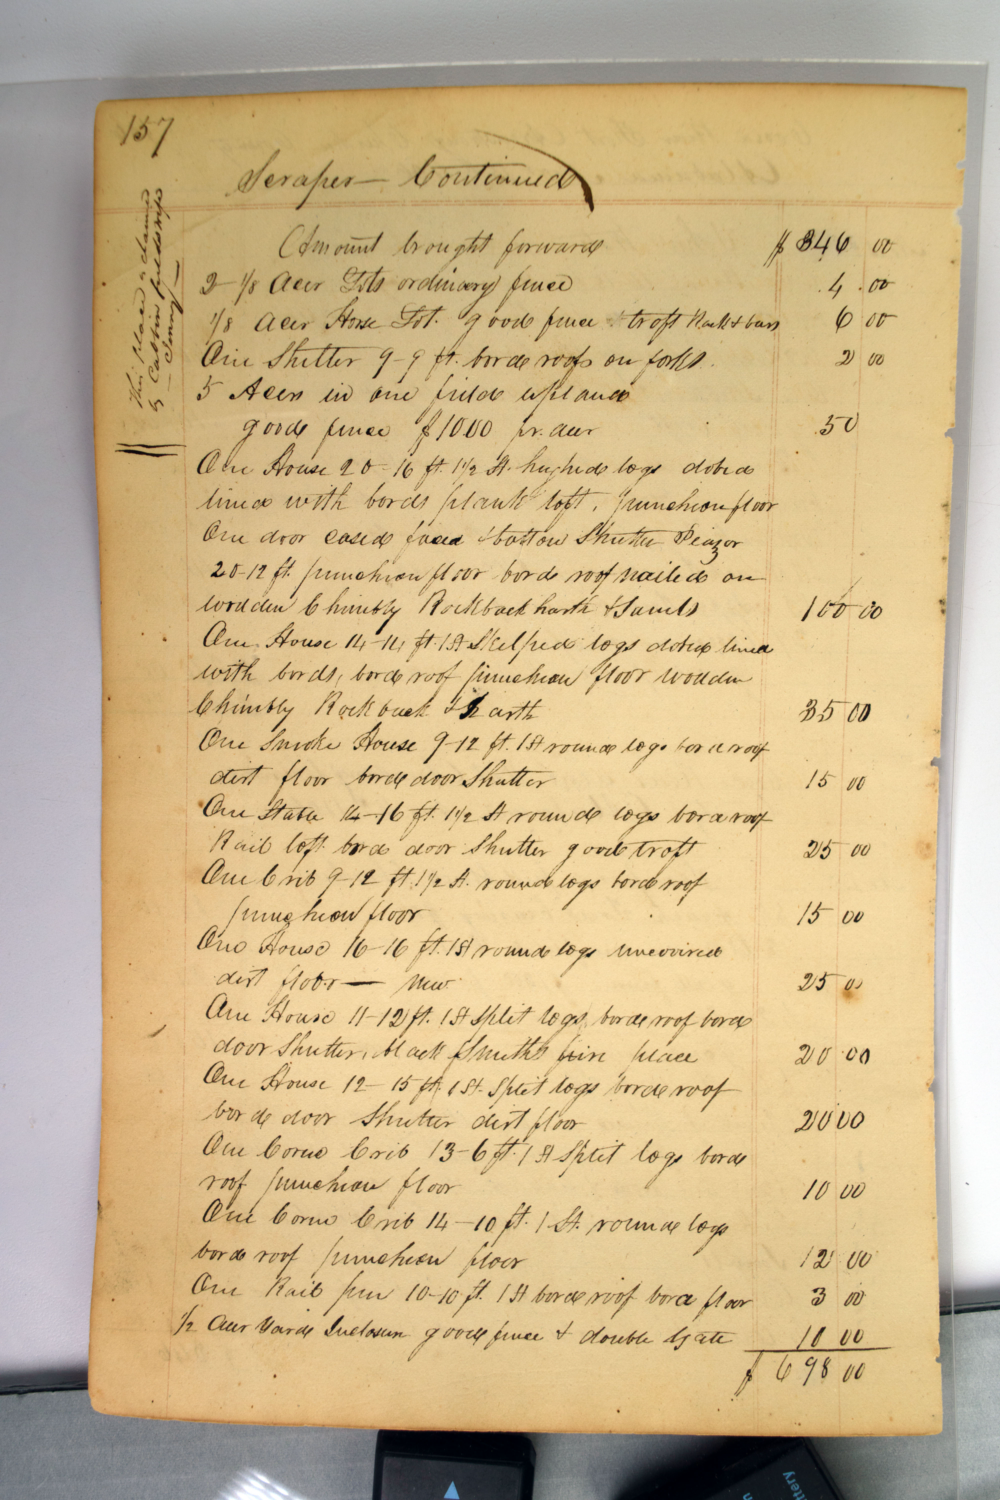 157
Scraper — Continued
This place is claimed
by
Amount brought forward $ 346 00
2 - 1/8 Acer Lots ordinary fence 4 00
1/8 Acer Horse Lot. good fence & troft Rack & bars 6 00
One Shelter 9-9 ft. borde roof on forks. 2 00
5 Acers in one field upland
good fence $10.00 pr. acer 50
One House 20-16 ft. 1 1/2 St. hughed logs dobed
lined with bords plank loft, puncheon floor
One door cased faced & batton Shutter Piazor
20-12 ft. puncheon floor borde roof nailed on
wooden Chimbly Rock back harth & Jambs 100 00
One House 14-14 ft. 1 St Skelped logs dobed lined
with bords, borde roof puncheon floor wooden
Chimbly Rock back & harth 35 00
One Smoke House 9-12 ft. 1 St round logs bord roof
dirt floor borde door Shutter 15 00
One Stable 14-16 ft. 1 1/2 St round logs bord roof
Rail loft borde door Shutter good troft 25 00
One Crib 9-12 ft. 1 1/2 St. round logs borde roof
puncheon floor 15 00
One House 16-16 ft. 1 St round logs uncovired
dirt floor — New 25 00
One House 11-12 ft. 1 St Split logs, borde roof borde
door Shutter, black Smiths fire place 20 00
One House 12-15 ft. 1 St. Split logs borde roof
borde door Shutter dirt floor 20 00
One Corne Crib 13-6 ft. 1 St Split logs borde
roof puncheon floor 10 00
One Corne Crib 14-10 ft. 1 St. round logs
borde roof puncheon floor 12 00
One Rail pen 10-10 ft. 1 St borde roof bord floor 3 00
1/2 Acer Yarde Inclosure good fence & double Gate 10 00
$ 698 00